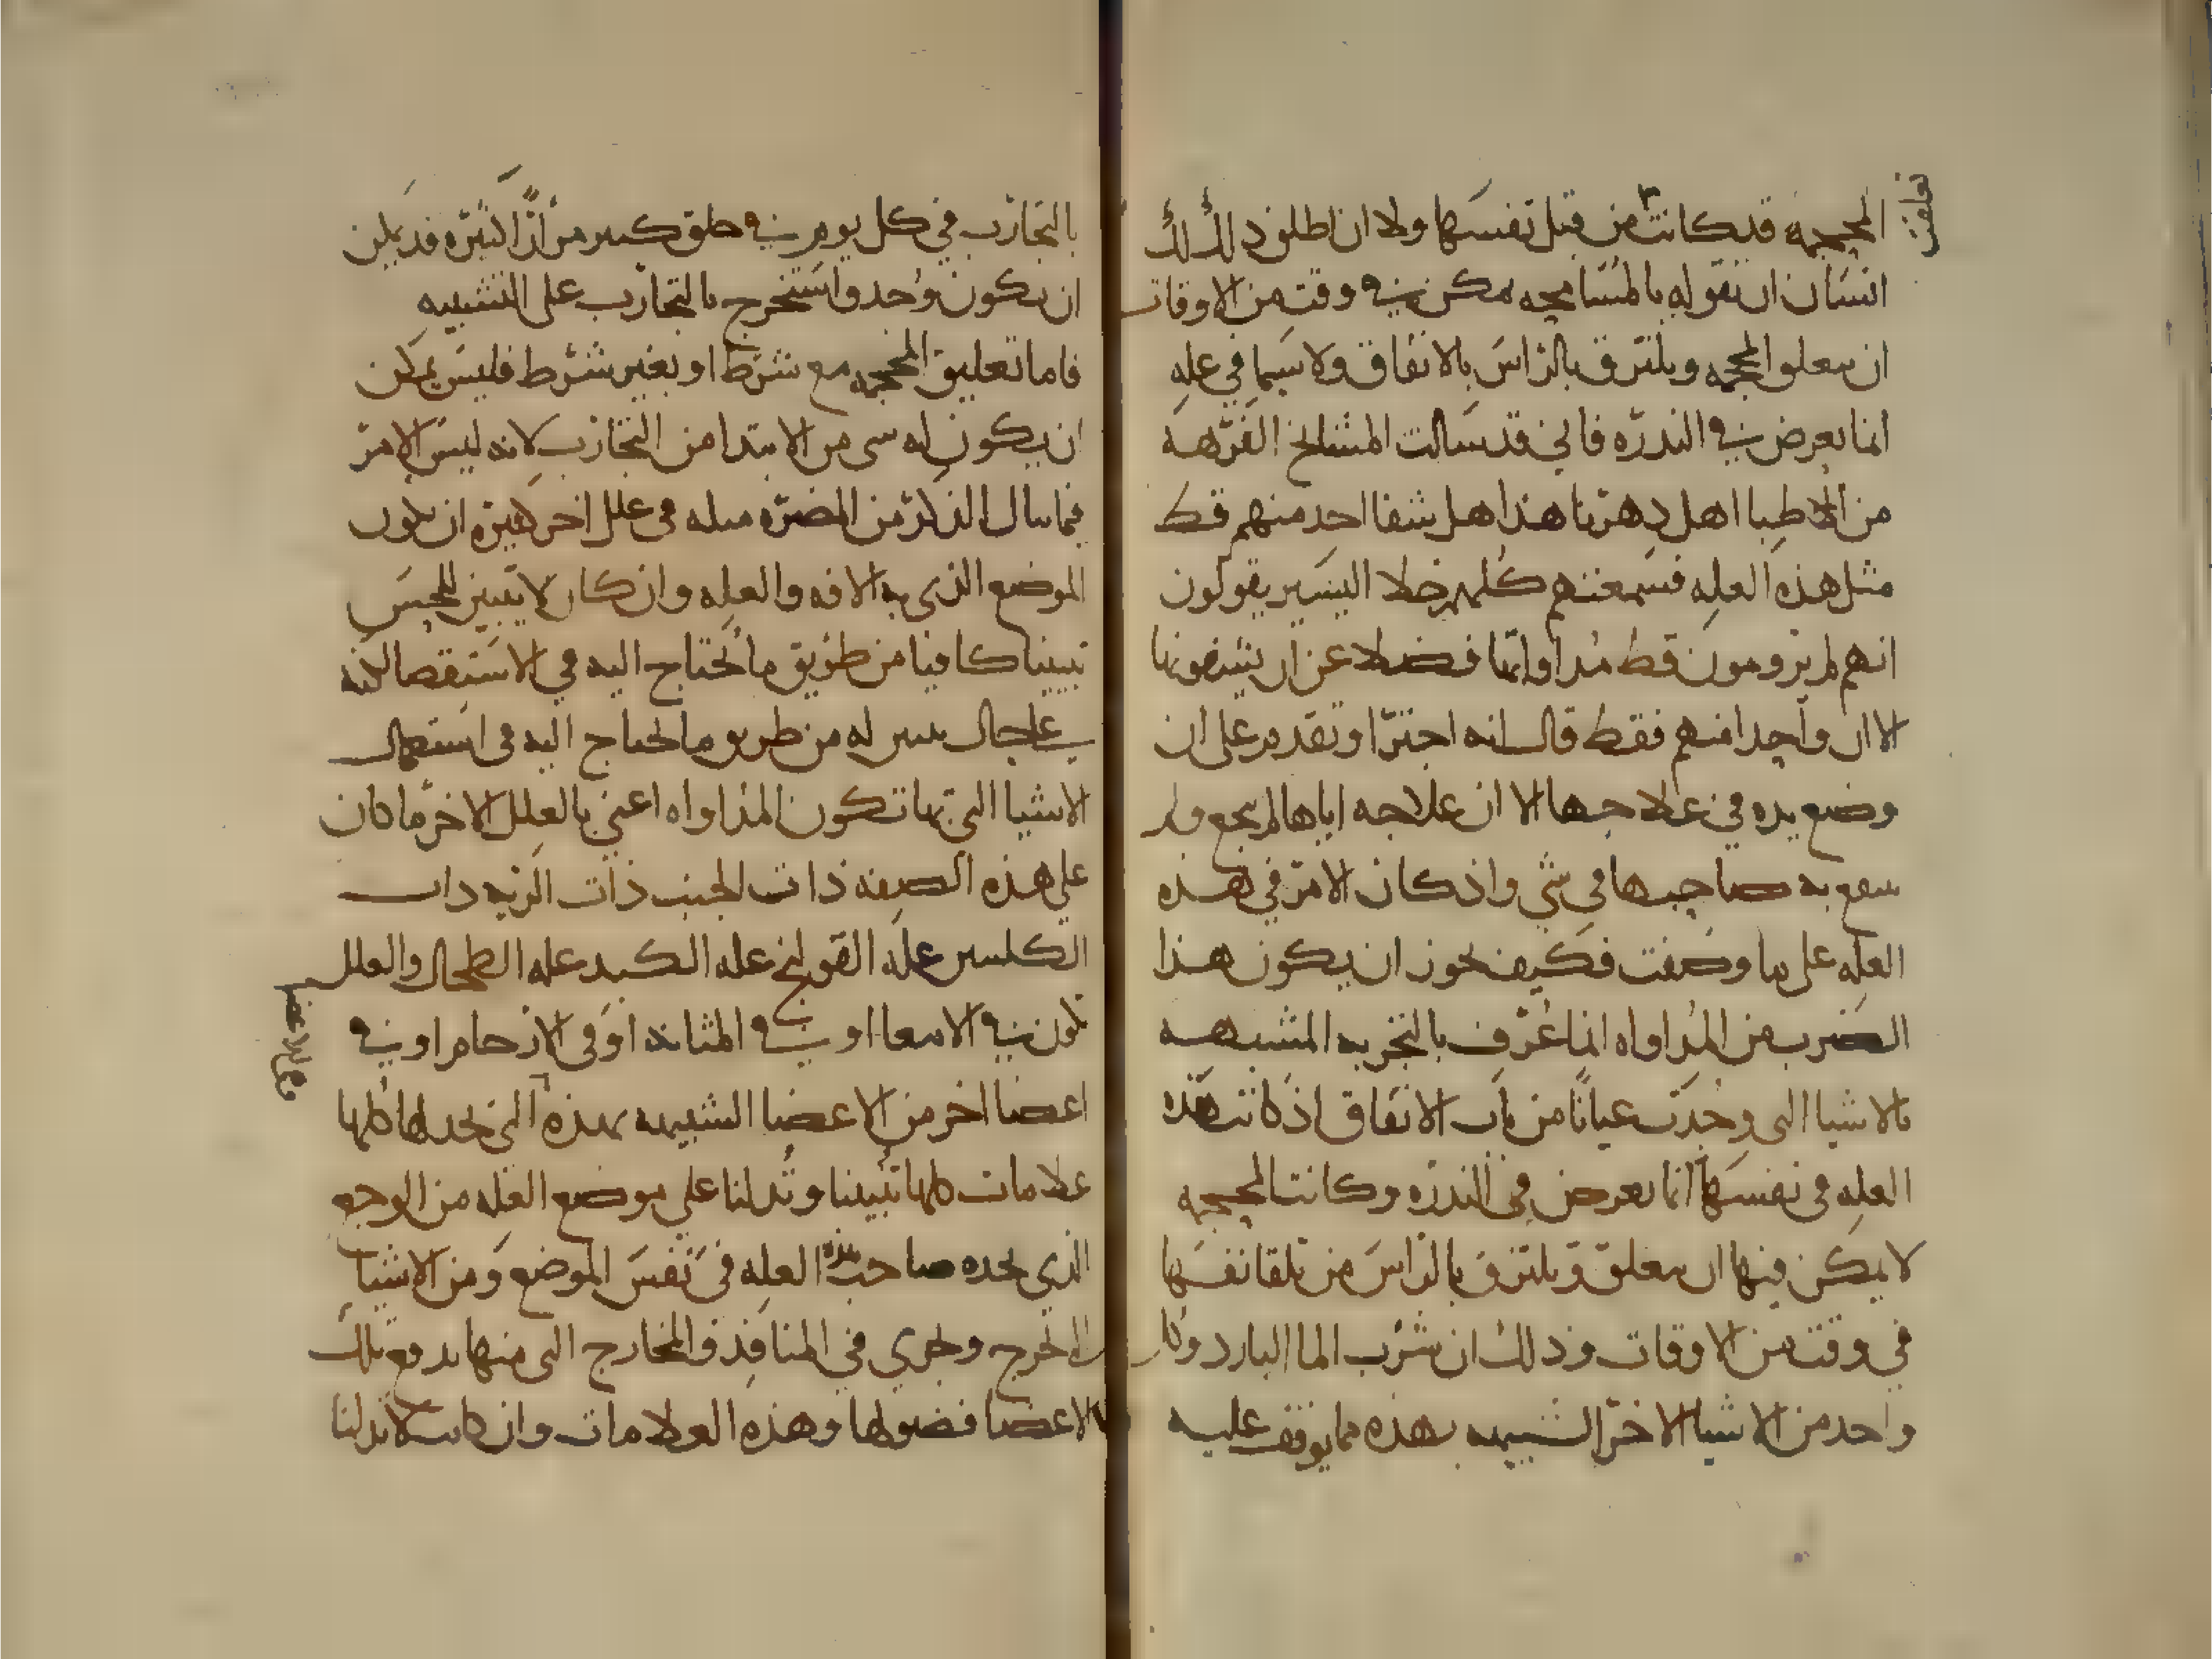 المحجمه قد كانت من قبل نفسها ولا ان اطلق ذلك لك
تعلقت
انسان ان يقوله بالمسامحه يمكن في وقت من الاوقات
ان تتعلق المحجمه ويلتزق بالراس بالاتفاق ولا سيما في عله
انما يعرض في الندره فاني قد سالت المشايخ الفرهه
من الاطبا اهل دهرنا هذا هل شفا احد منهم قط
مثل هذه العله فسمعتهم كلهم خلا اليسير يقولون
انهم لم يرومون قط مداواتها فضلا عن ان يشفونها
الا ان واحدا منهم فقط قال انه اجترا وتقدم على ان
وضع يده في علاجها الا ان علاجه اياها لم ينجع ولم
ينتفع به صاحبها في شي واذ كان الامر في هذه
العله على ما وصفت فكيف يجوز ان يكون هذا
الضرب من المداواه انما عرف بالتجربه المشبهه
بالاشيا التي وجدت عيانا من باب الاتفاق اذ كانت هذه
العله في نفسها انما تعرض في الندره وكانت المحجمه
لا يمكن فيها ان تتعلق وتلتزق بالراس من تلقا نفسها
في وقت من الاوقات وذلك ان شرب الما البارد وكل
واحد من الاشيا الاخر الشبيهه بهذه مما يوقف عليه
بالتجارب في كل يوم في خلق كثير من ان النيره قد يمكن
ان يكون وجد واستخرج بالتجارب على التشبيه
فاما تعليق المحجمه مع شرط او بغير شرط فليس يمكن
ان يكون له شي من الابتدا من التجارب لانه ليس الامر
فيما ينال الذكر من المضره مثله في علل اخر كثيره ان يكون
الموضع الذي به الافه والعله وان كان لا يتبين للحس
تبيينا كافيا من طريق ما نحتاج اليه في الاستقصا لكنه
على حال يتبين له من طريق ما يحتاج اليه في استعمال
الاشيا التي بها تكون المداواه اعني بالعلل الاخر ما كان
على هذه الصفه ذات الجنب ذات الريه ذات
الكليتين عله القولنج عله الكبد عله الطحال والعلل
تكون في الامعا او في المثانه او في الارحام او في
اعضا اخر من الاعضا الشبيهه بهذه التي نجد لها كلها
علامات كلها تبيننا وتدلنا على موضع العله من الوجع
الذي يجده صاحب هذه العله في نفس الموضع ومن الاشيا
التي تخرج وتجري في المنافذ والمخارج التي منها تدفع تلك
الاعضا فضولها وهذه العلامات وان كانت لا تدلنا